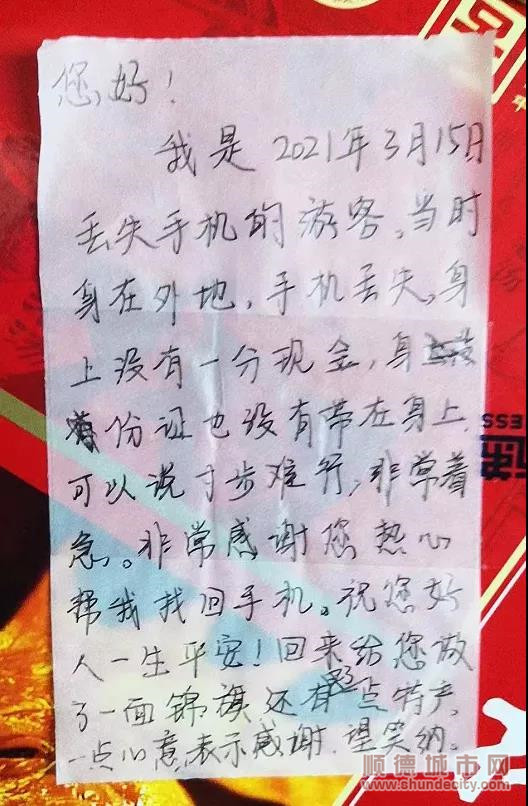 您好！
我是2021年3月15日
丢失手机的游客，当时
身在外地，手机丢失，身
上没有一分现金，身
份证也没有带在身上，
可以说寸步难行，非常着
急。非常感谢您热心
帮我找回手机。祝您好
人一生平安！回来给您做
了一面锦旗还有点特产，
一点心意，表示感谢，望笑纳。
ESS
顺德城市网
www.shundecity.com